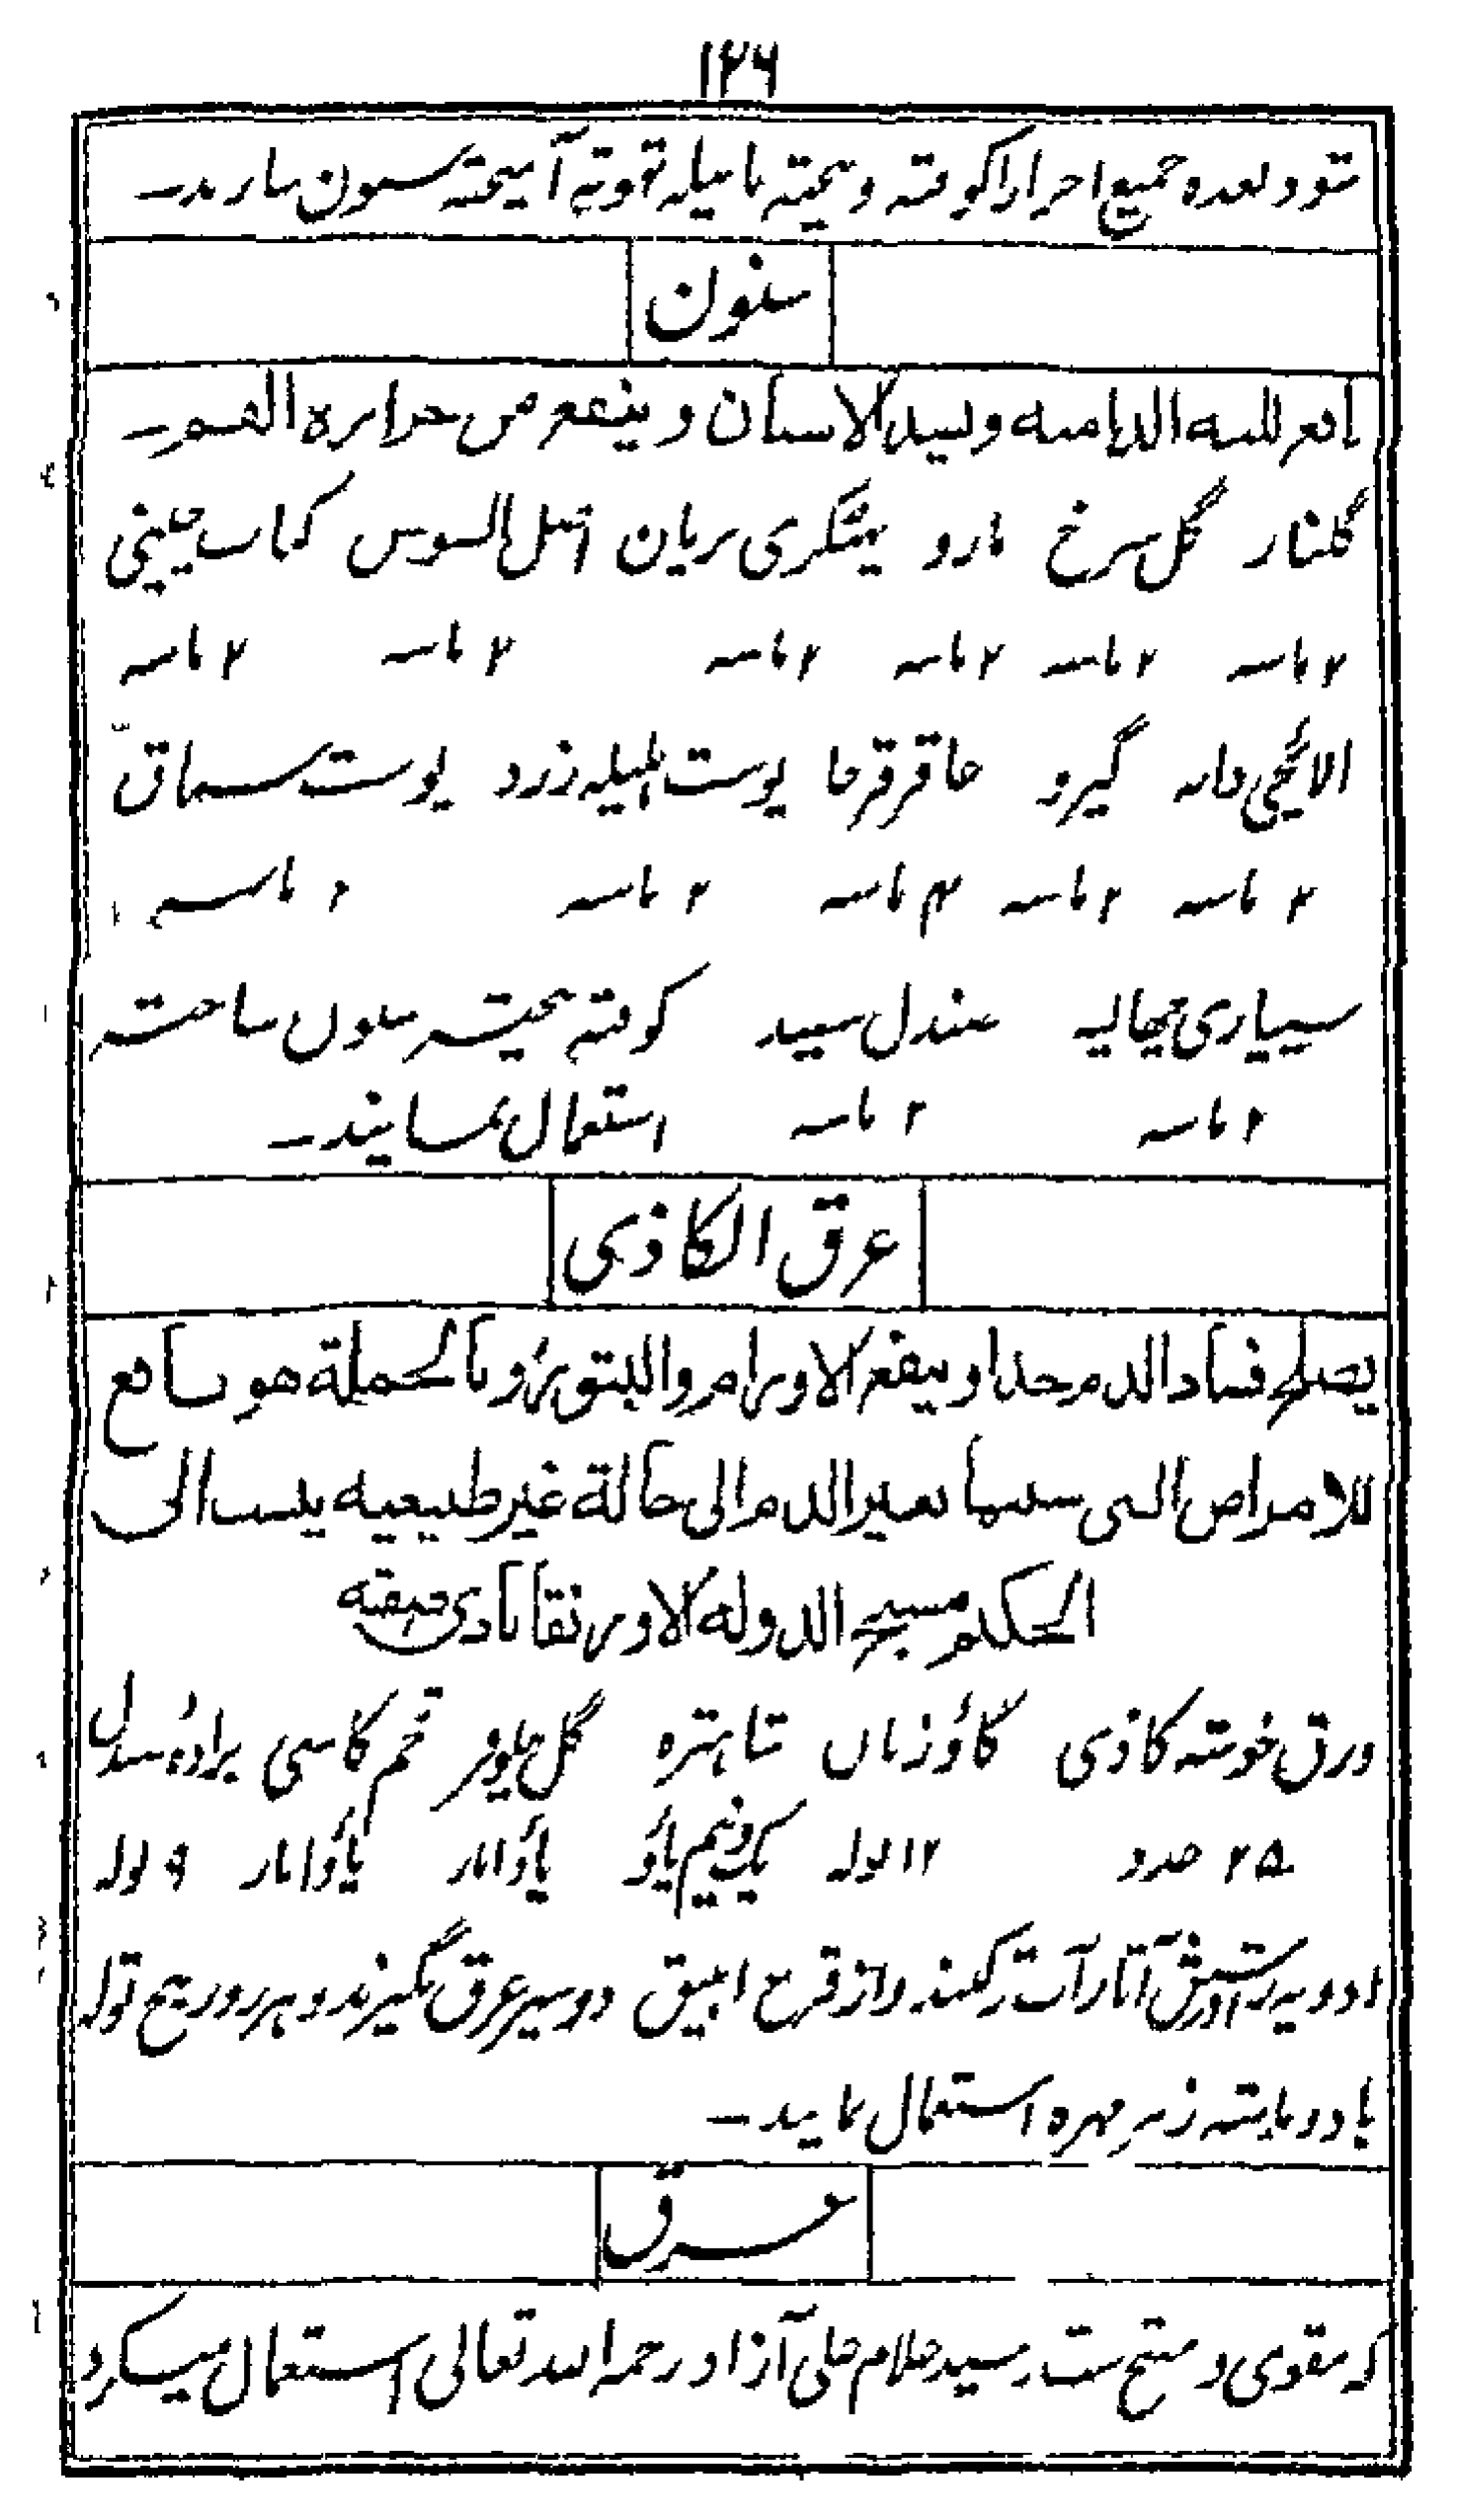 ۱۲۶
شود بعده جمیع اجزا را کوفته و بیخته با میله قهوته آمیخته سنون سازند۔
سنون
نافع للثه الدامیه و لیسد الاسنان و ینفع من حرارة الفم۔
گلنار گل سرخ مازو پھٹکری بریان اصل السوس کباب چینی
۲ ماشہ ۲ ماشہ ۲ ماشہ ۲ ماشہ ۲ ماشہ ۲ ماشہ
الائچی دانہ گیرو عاقرقرحا پوست ہلیلہ زرد پوست سماق
۲ ماشہ ۲ ماشہ ۴ ماشہ ۲ ماشہ ۲ ماشہ
سپیاری چھالیہ صندل سپید کوفتہ بیختہ سنون ساختہ
۲ ماشہ ۲ ماشہ استعمال نمایند۔
عرق الکاذی
یصلح فساد الدم جدا و ینفع الاورام والبثور و بالجملة هو نافع
للامراض التی سببها تغیر الدم الی حالة غیر طبیعیه ینسب الی
الحکیم مسیح الدوله الاورنقابادی
ورق خوشہ کاذی گاؤزبان شاہترہ گل نیلوفر تخم کاسنی برادۂ صندل
۲۵ عدد ۱۲ تولہ یک ونیم پاؤ پاؤ آثار پاؤ آثار ۹ تولہ
ادویہ را در شش آثار آب تر کنند و از قرع انبیق دو سیر عرق بگیرند و ہر روز پنج تولہ
با دو ماشہ زہر مہرہ استعمال نمایند۔
عرق
کہ مقوی و مفتح ست سید غلام علی آزاد رحمہ اللہ تعالی استعمال میکرد